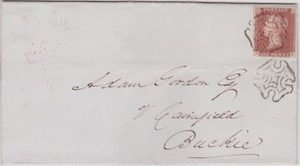 Adam Gordon Esq
of Cairnfield
Buckie